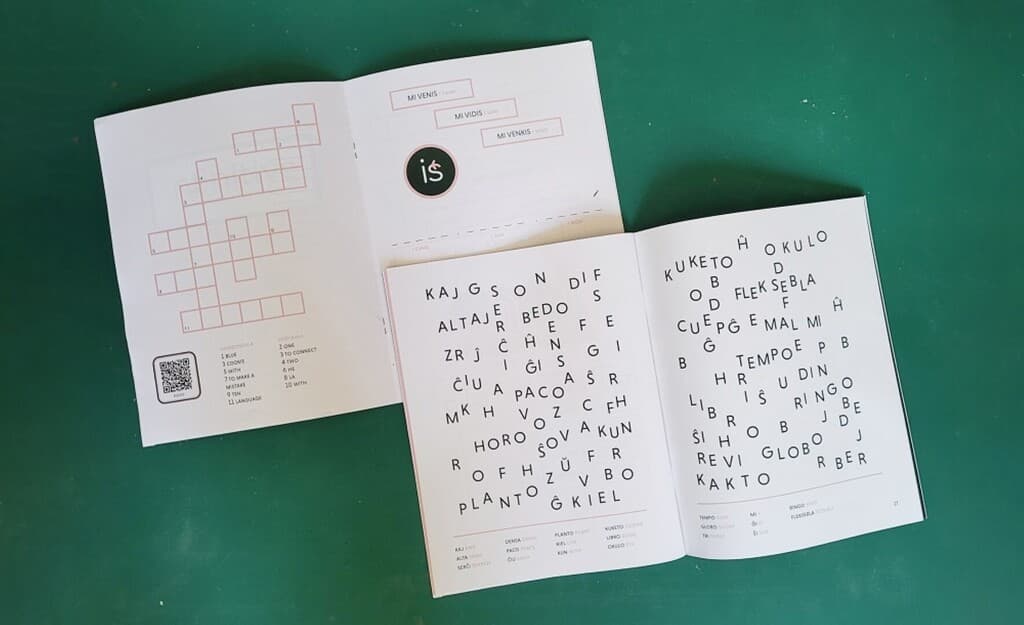 MI VENIS
MI VIDIS
MI VENKIS
is
1 BLUE
3 COOKIE
5 WITH
7 TO MAKE A
MISTAKE
9 TEN
11 LANGUAGE
2 ONE
3 TO CONNECT
4 TWO
6 HE
8 LA
10 WITH
K A J G S O N D I F
A L T A J E R B E D O S
Z R Ĵ Ĉ Ĥ E F E
Ĉ I U I Ĝ I N S G I
M K H A P A C O A Ŝ R
V O Z C F H
R H O R O Ŝ O V A K U N
O F H Z Ŭ F R
P L A N T O Ĝ K I E L V B O
KAJ
ALTA
SERĈI
DENSA
PACO
ĈU
PLANTO
KIEL
KUN
KUKETO
LIBRO
OKULO
K U K E T O Ĥ O K U L O
O B D F L E K S E B L A D
C U E P Ĝ E M A L M I F Ĥ
B Ĝ T E M P O E P B
H R U D I N
L I B R I Ŝ R I N G O
Ŝ I H O B J B E
R E V I G L O B O D J
K A K T O R B E R
TEMPO
GLOBO
MI
ĜI
ŜI
RINGO
FLEKSEBLA
27